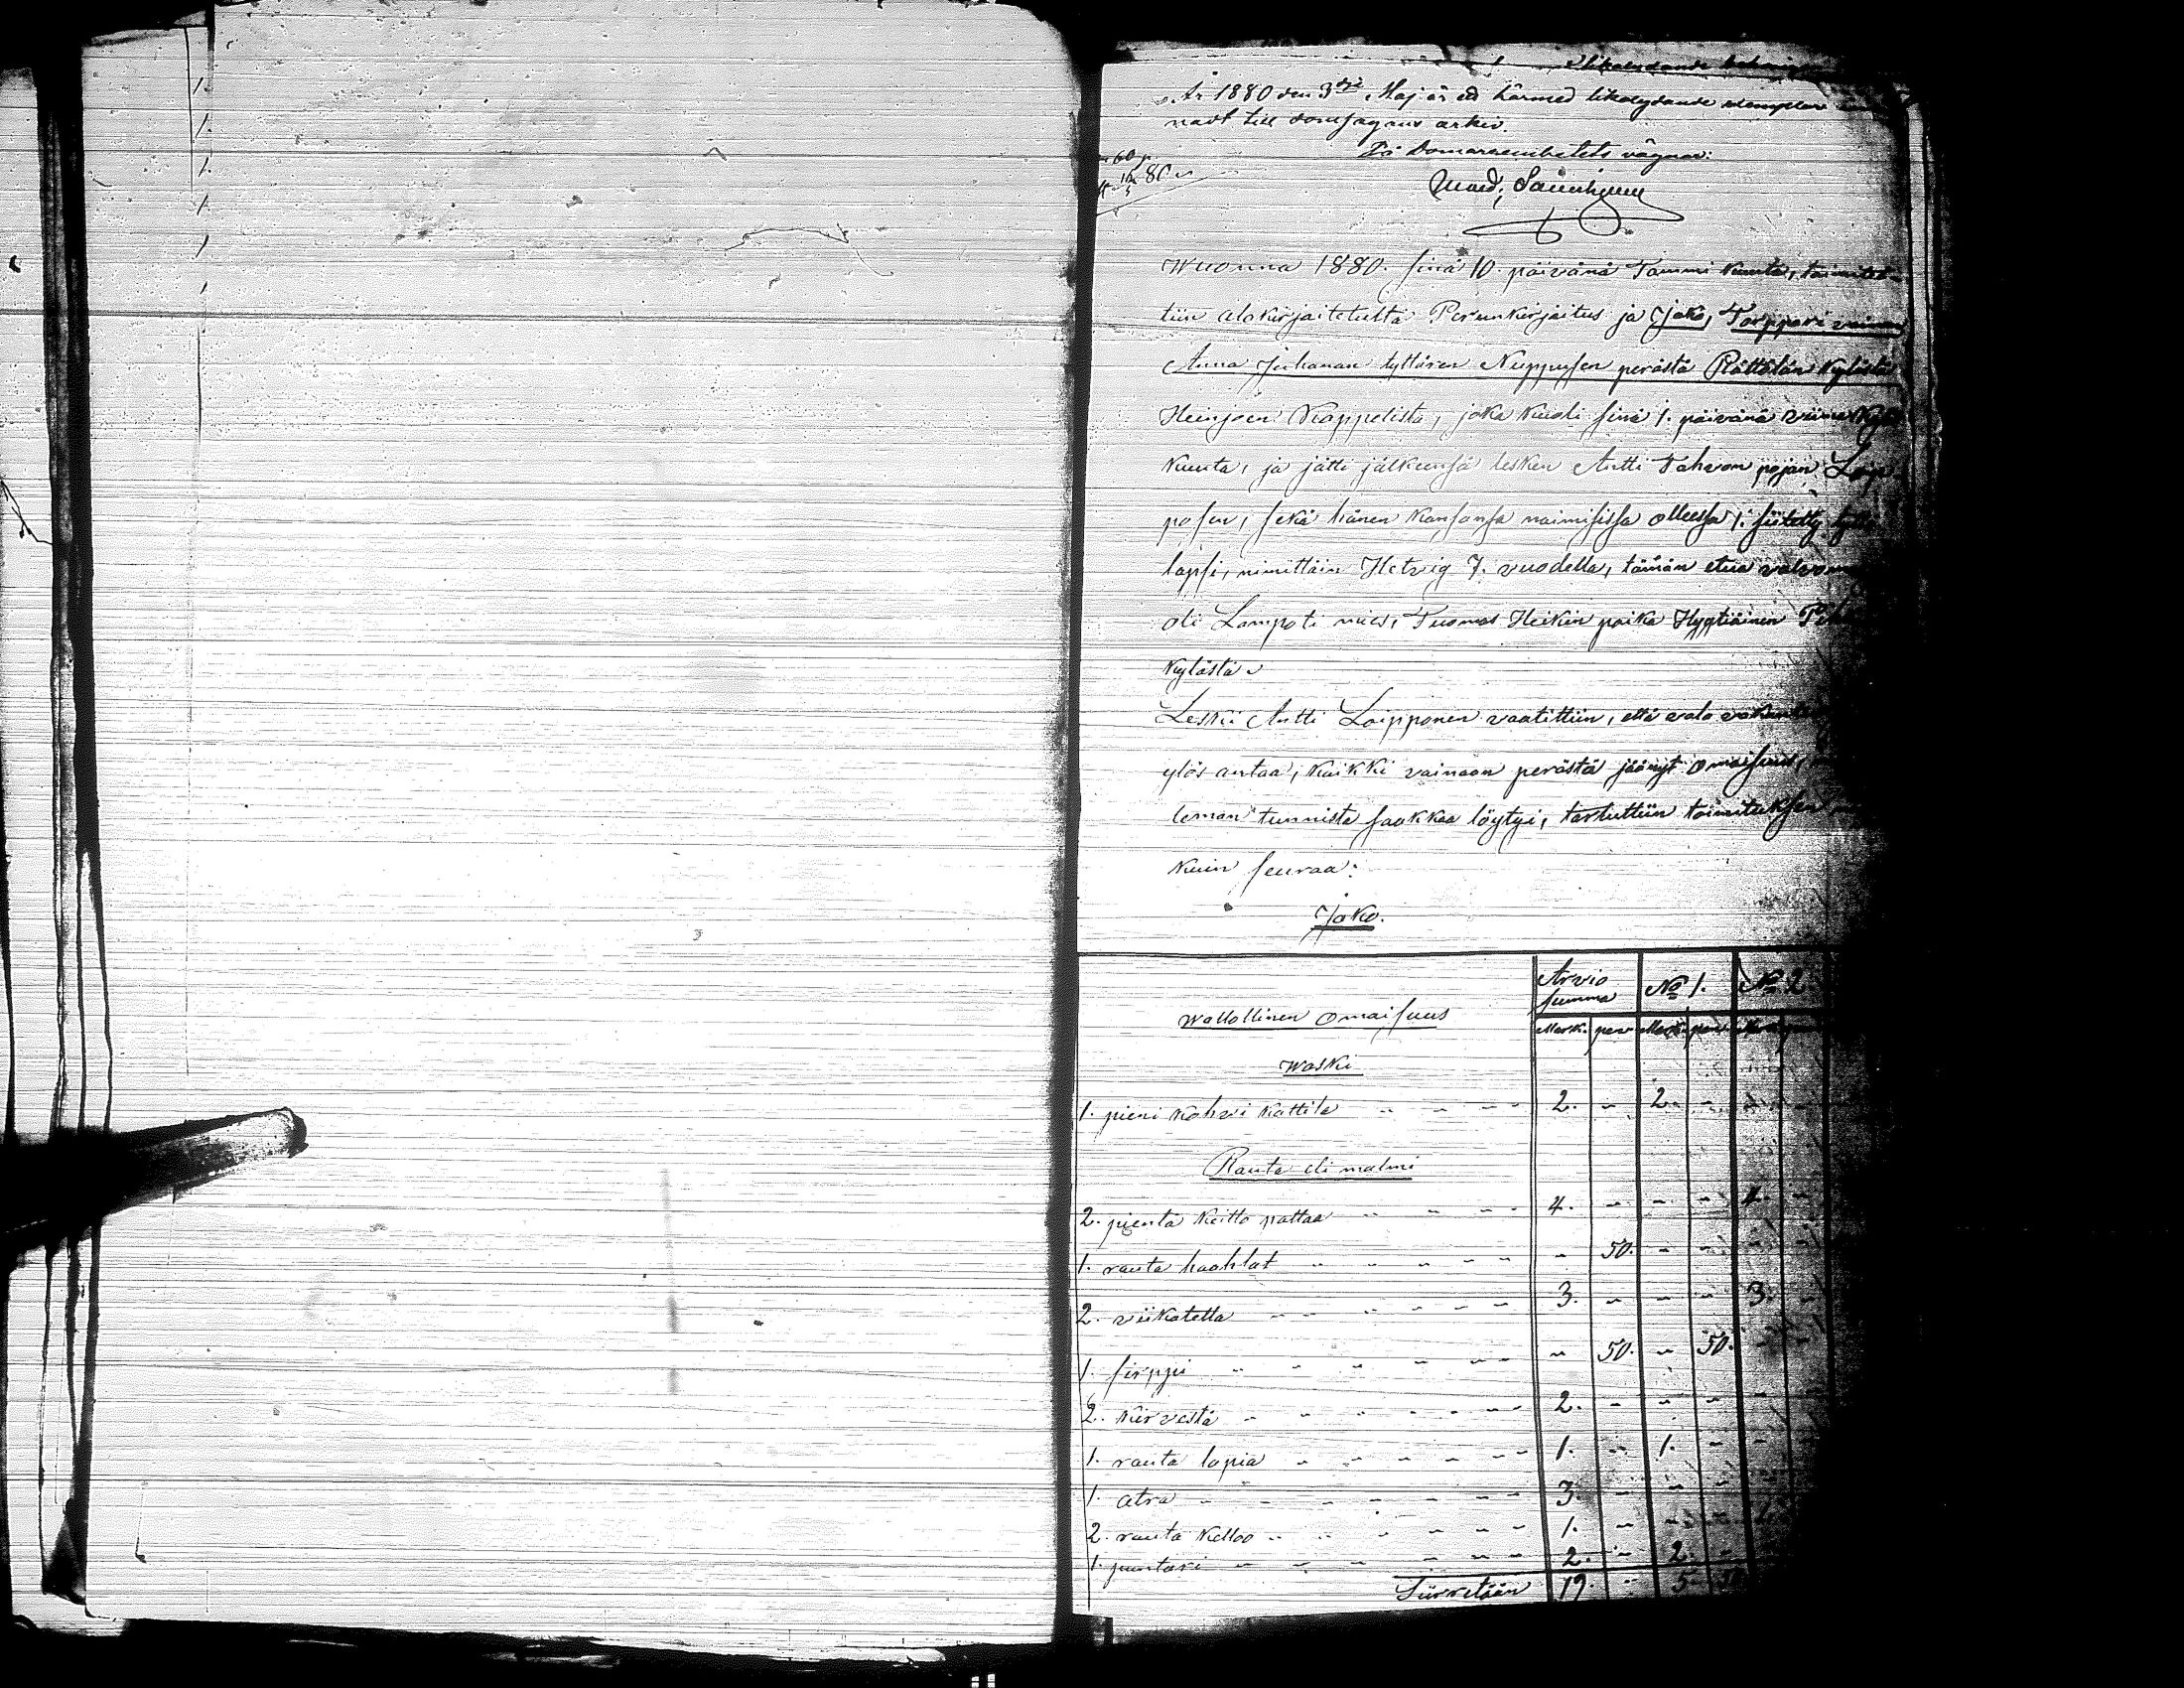 Likalydande
År 1880 den 3dje Maj är ett härmed likalydande exemplar
nadt till domsagans arkiv.
På Domareembetets vägnar:
60 p
80
Wuonna 1880. sinä 10. päivänä Tammi kuuta, toimitet-
tiin alakirjoitetulta Perunkirjoitus ja Jako, Torppari vaimon
Anna Juhanan tyttären Nuppusen perästä Rättölän kylästä
Heinjoen Kappelista, joka kuoli sinä 1. päivänä viime
kuuta, ja jätti jälkeensä lesken Antti Tahvon pojan Loip-
posen, sekä hänen kansansa naimisissa ollessa 1. siitetty
lapsi, nimittäin Hetvig 7. vuodella, tämän etua valvomassa
oli Lampoti mies, Tuomas Heikin poika Hyytiäinen
kylästä
Leski Antti Loipponen vaatittiin, että vala
ylös antaa, kaikki vainaan perästä jäänyt omaisuus,
leman tunnista saakkaa löytyi, tartuttiin toimituksen
kuin seuraa:
Jako.
Arvio summa No 1. No 2
Wallollinen omaisuus Mark. pen Mark. pen
Waski
1. pieni kahvi kattila 2. - 2. -
Rauta eli malmi
2. pientä keitto pattaa 4. - - - 4. -
1. rauta haahlat - 50. - - - -
2. viikatetta 3. - - - 3. -
1. sirppi - 50. - 50. - -
2. kirvestä 2. - - - -
1. rauta lapia 1. - 1. - -
1. atra 3. - - - -
2. rauta kelloo 1. - - -
1. puntari 2. - 2. -
Siirretään 19. - 5.